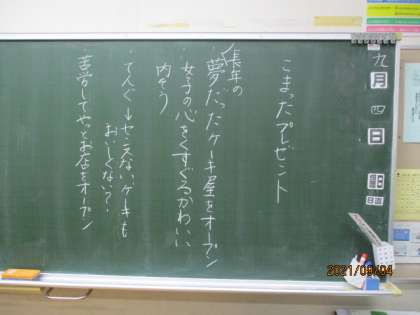 九月四日
こまったプレゼント
・長年の
夢だったケーキ屋をオープン
・女子の心をくすぐるかわいい
内そう
・てんぐ→せこえない、ケーキも
おいしくない?
・苦労してやっとお店をオープン
2021/09/04